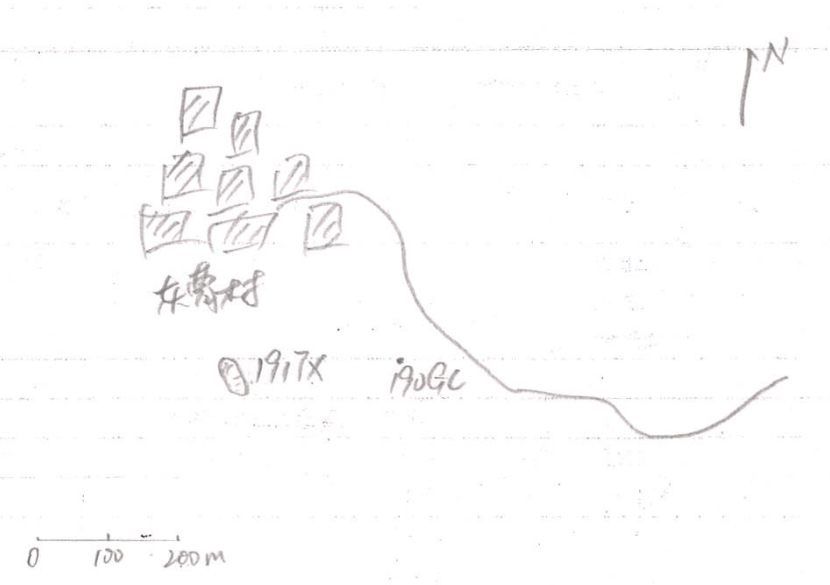 N
东曹村
1917X
190GC
0 100 200m